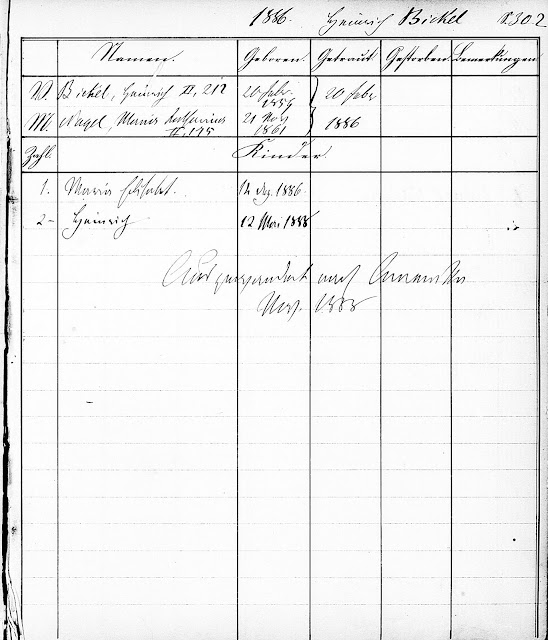 1886. Heinrich Bickel S. 302
Namen. Geboren. Getraut Gestorben Bemerkungen
V. Bickel, Heinrich II, 217 20 Febr. 1856 20 Febr
M. Nagel, Maria Katharina II, 175 21 Nov 1861 1886
Zahl. Kinder.
1. Maria Elisabet. 12 Dez. 1886.
2 - Heinrich 12 Mai 1888
Ausgewandert nach Amerika
Nov. 1888